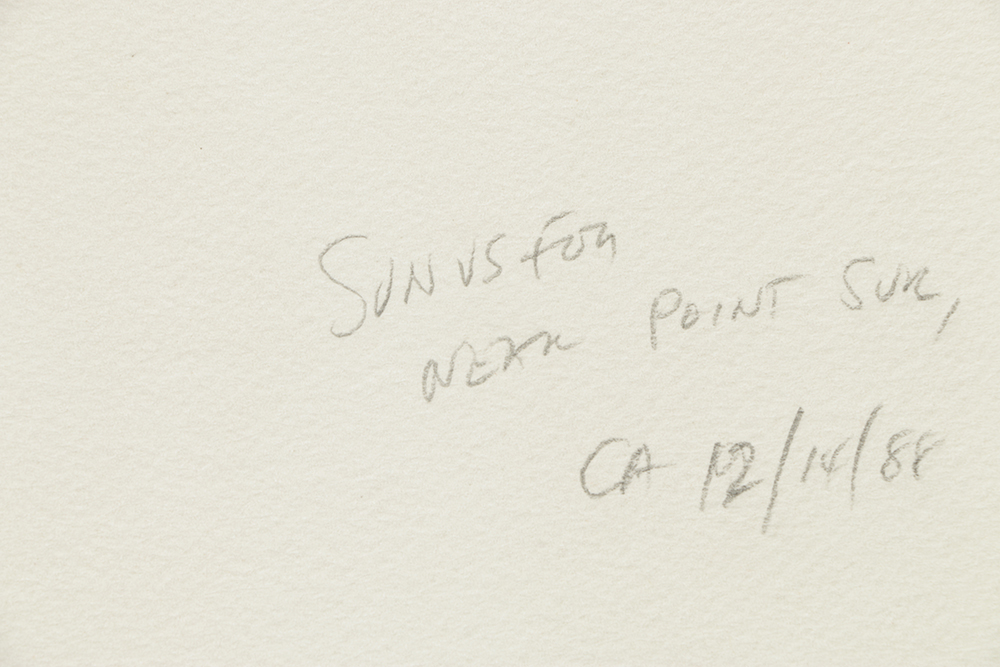 SUN VS FOG
NEAR POINT SUR,
CA 12/14/88